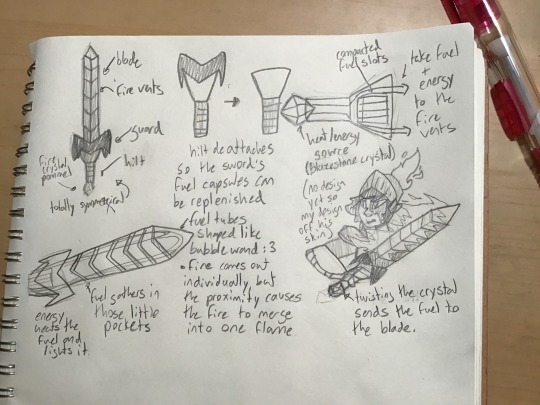 blade
fire vents
guard
hilt
fire
crystal
pommel
totally symmetrical
hilt deattaches
so the sword's
fuel capsules can
be replenished
compacted
fuel slots
take fuel
+
energy
to the
fire
vents
heat/energy
source
(blazestone crystal)
(no design
yet so
my design
off his
skin)
fuel tubes
shaped like
bubble wand :3
• fire comes out
individually but
the proximity causes
the fire to merge
into one flame
fuel gathers in
those little
pockets
energy
heats the
fuel and
lights it.
twisting the crystal
sends the fuel to
the blade.